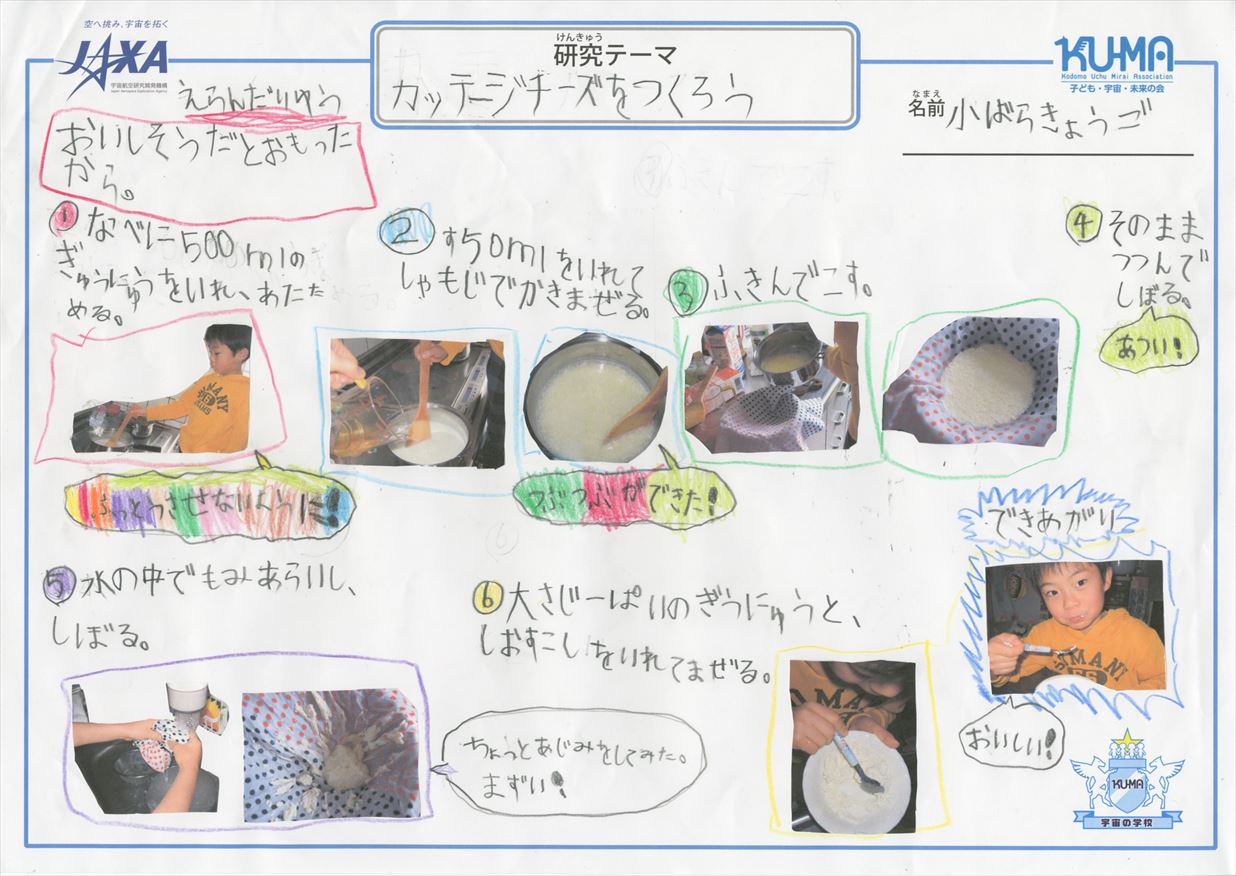 空へ挑み、宇宙を拓く
JAXA
宇宙航空研究開発機構
Japan Aerospace Exploration Agency
けんきゅう
研究テーマ
カッテージチーズをつくろう
KU-MA
Kodomo Uchu Mirai Association
子ども・宇宙・未来の会
なまえ
名前 小ばらきょうご
えらんだりゆう
おいしそうだとおもった
から。
① なべに500mlの
ぎゅうにゅうをいれ、あたた
める。
② す50mlをいれて
しゃもじでかきまぜる。
③ ふきんでこす。
④ そのまま
つつんで
しぼる。
あつい!
ふっとうさせないように!
つぶつぶができた!
できあがり
⑤ 水の中でもみあらいし、
しぼる。
⑥ 大さじ一ぱいのぎうにゅうと、
しおすこしをいれてまぜる。
ちょっとあじみをしてみた。
まずい!
おいしい!
KUMA
宇宙の学校